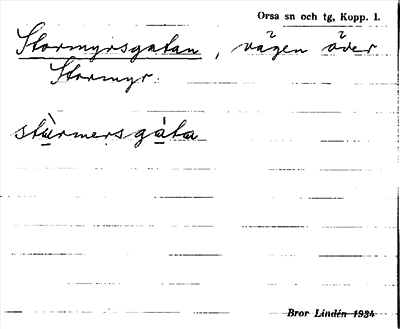 Orsa sn och tg, Kopp. l.
Stormyrsgatan, vägen över
Stormyr.
stùrmersgàta
Bror Lindén 1934